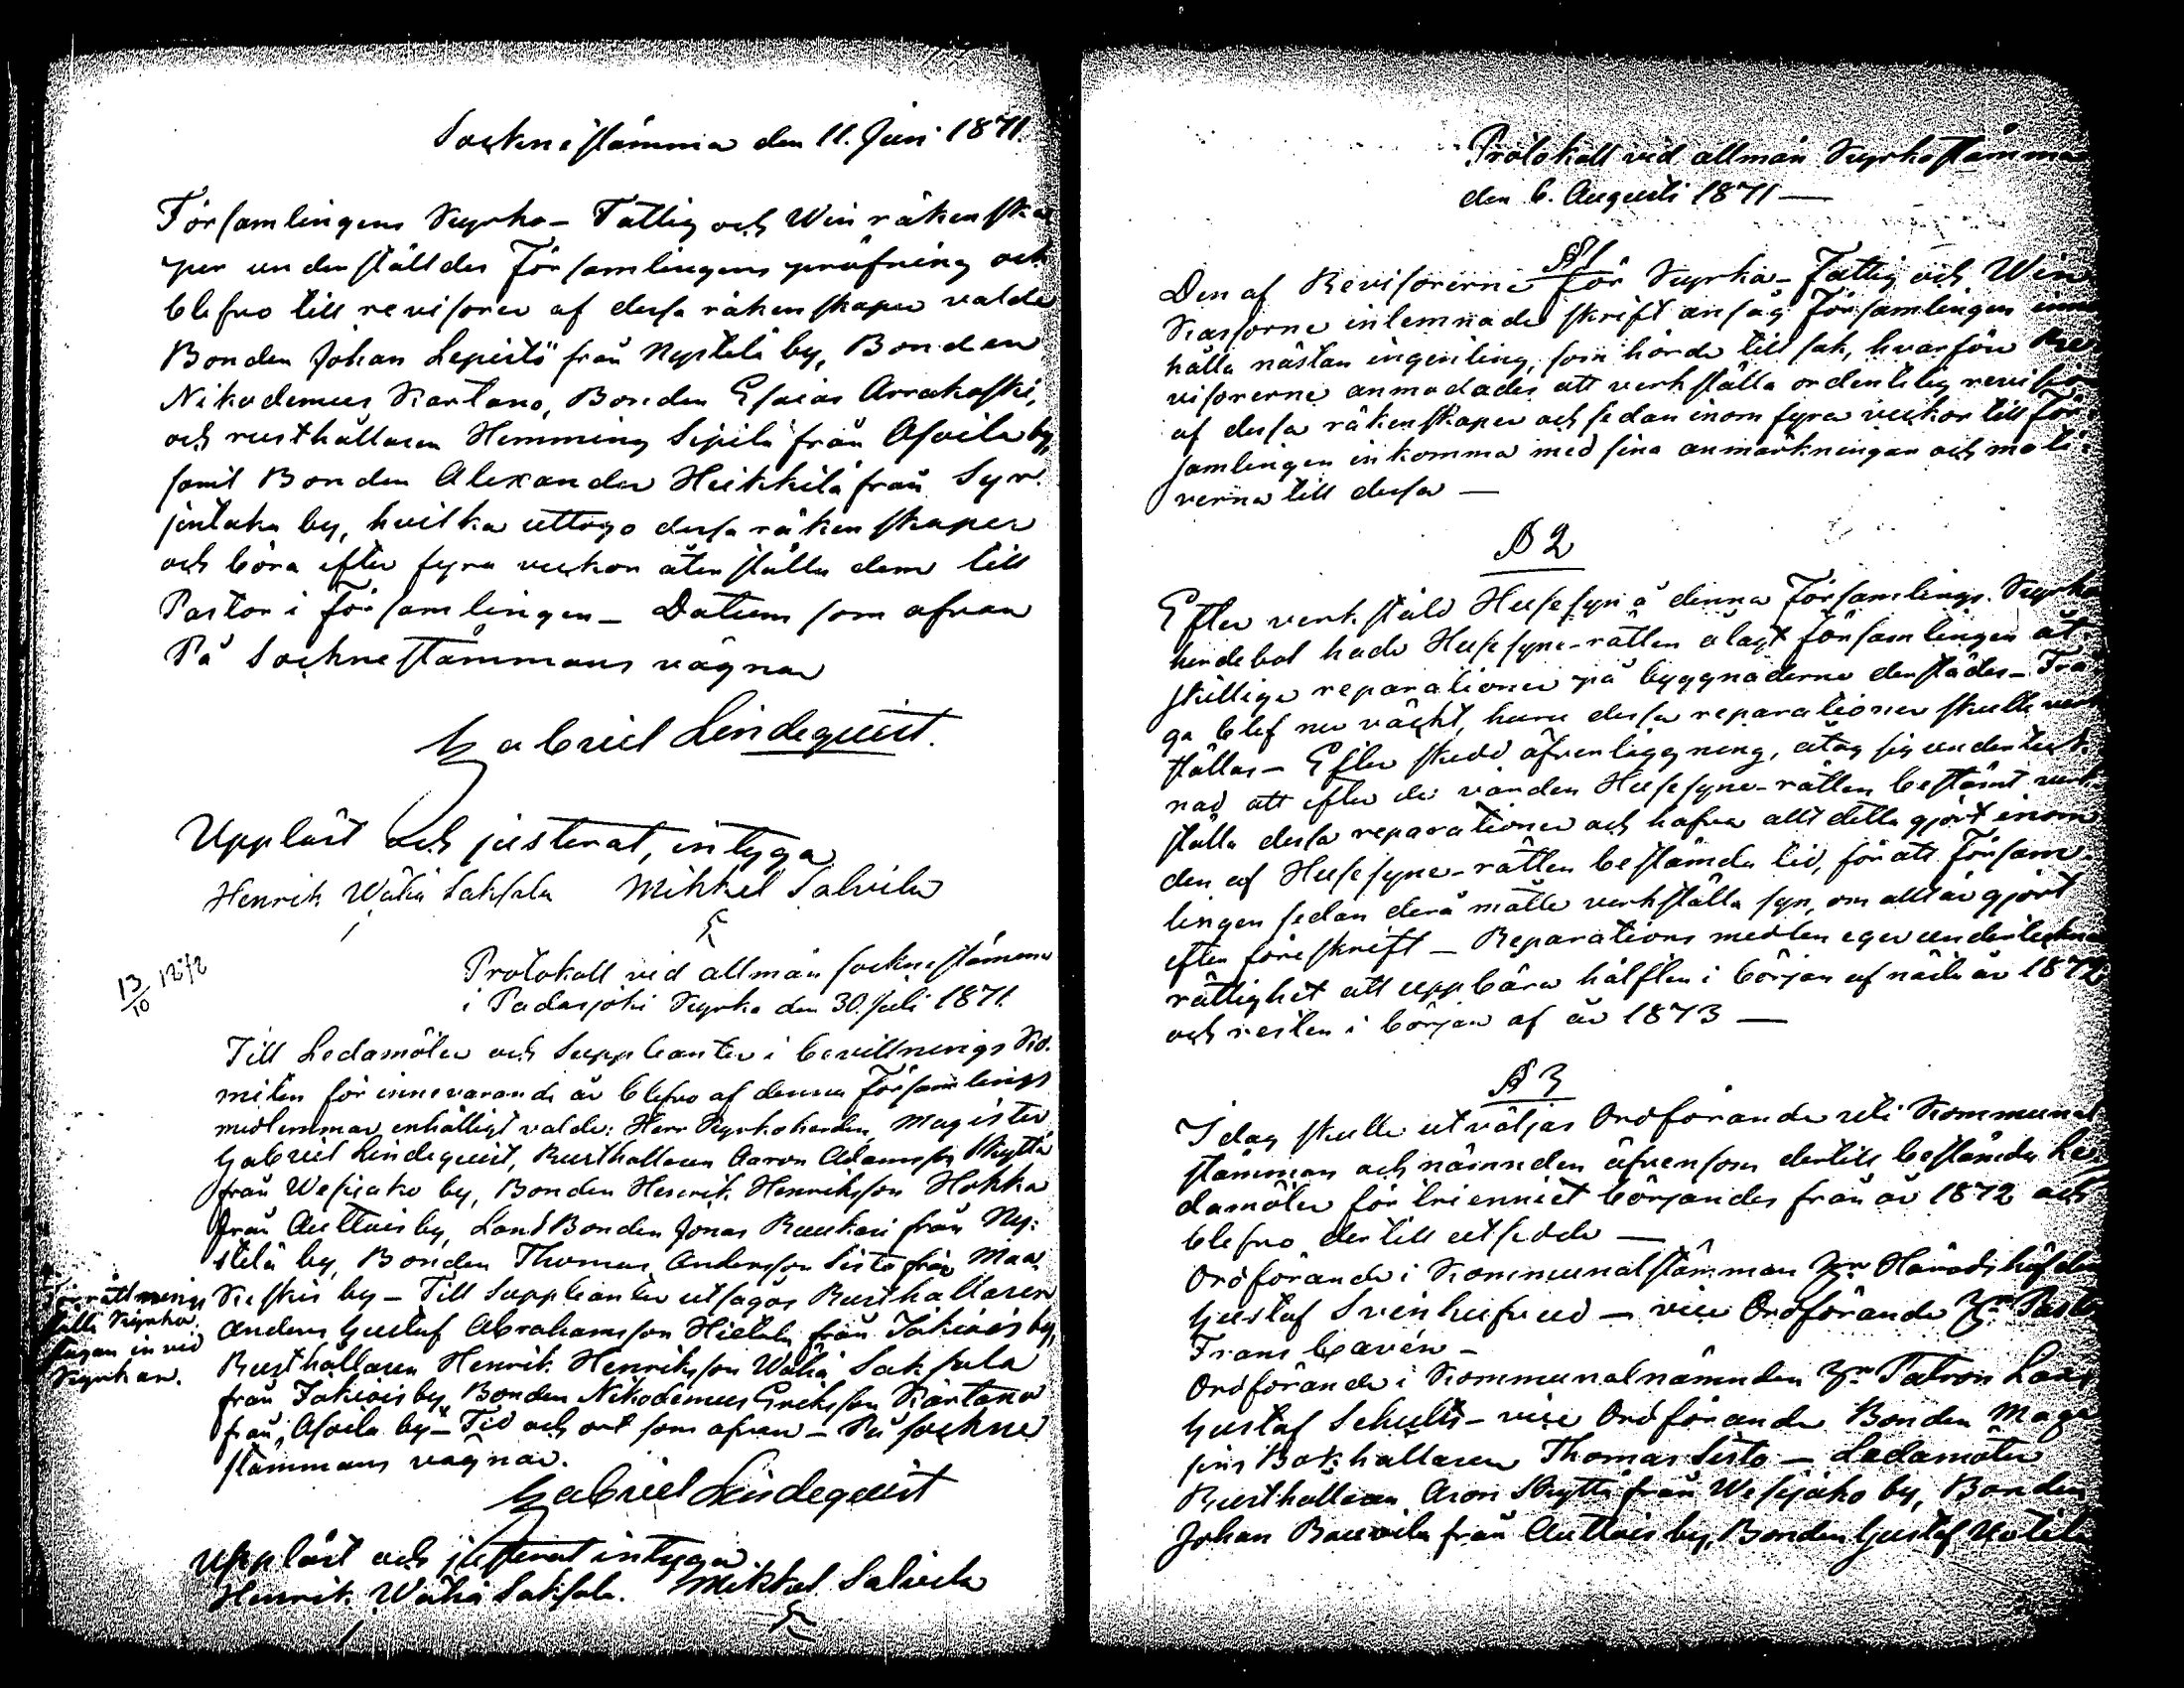 Sockne stämma den 11. Juni 1871.
Församlingens Kyrko- Fattig och Vin räkenska
per underställdes Församlingens pröfning och
blefvo till revisorer af dessa räkenskaper valde
Bonden Johan Lepistö från Nystelä by, Bonden
Nikodemus Kartano, Bonden Esaias Arrakoski,
och rusthållaren Hemming Sipilä från Osoila by,
samt Bonden Alexander Heikkilä från Syr
jentaka by, hvilka uttogo dessa räkenskaper
och böra efter fyra veckor återställa dem till
Pastor i Församlingen – Datum som ofvan
På Sockne stämmans vägnar
Gabriel Lindequist.
Uppläst och justerat, intyga
Henrik Wähä Saksala Mikkel Salvila
13/10 12 1/2
Protokoll vid allmän sockne stämma
i Padasjoki Kyrka den 30. Juli 1871.
Till Ledamöter och Suppleanter i bevillnings Ko.
miten för innevarande år blefvo af denna Församlings
medlemmar enhälligt valde: Herr Kyrkoherden, Magister
Gabriel Lindequist, Rusthållaren Aaron Adamsson Skyttä
från Wesijako by, Bonden Henrik Henriksson Hokka
från Auttois by, Land Bonden Jonas Ruukari från Ny:
stelä by, Bonden Thomas Andersson Sisto från Maa:
Keskis by – Till Suppleanter utsågos Rusthållaren
Anders Gustaf Abrahamsson Hietala från Jokiois by,
Rusthållaren Henrik Henriksson Wähä Saksala
från Jokiois by, Bonden Nikodemus Eriksson Kartano
från Osoila by – Tid och ort som ofvan – På sockne
stämmans vägnar.
Förrättnings
ställe Kyrko
stugan invid
Kyrkan.
Gabriel Lindequist
Uppläst och justerat intyga
Henrik Wähä Saksala. Mikkel Salvila
Protokoll vid allmän Kyrkostämma
den 6. Augusti 1871 —
§ 1
Den af Revisorerne för Kyrko- Fattig och Vin
Kassorne inlemnade skrift ansåg Församlingen inne
hålla nästan ingenting, som hörde till sak, hvarföre Re
visorerne anmodades att verkställa ordentelig revision
af dessa räkenskaper och sedan inom fyra veckor till För
samlingen inkomma med sina anmärkningar och moti:
verna till dessa —
§ 2
Efter verkstäld Husesyn å denna Församlings Kyrko
herdebol hade Husesyne-rätten ålagt Församlingen åt
skilliga reparationer på byggnaderne derstädes – Frå
ga blef nu väckt, huru dessa reparationer skulle verk
ställas – Efter skedd öfverläggning, åtog sig underteck
nad att efter de värden Husesyne-rätten bestämt verk
ställa dessa reparationer och hafva allt detta gjort inom
den af Husesyne-rätten bestämda tid, för att Försam
lingen sedan derå måtte verkställa syn, om allt är gjort
efter föreskrift – Reparations medlen eger undertecknad
rättighet att uppbära hälften i början af nästa år 1872
och resten i början af år 1873 —
§ 3
I dag skulle utväljas Ordförande uti Kommunal
stämman och nämnden äfvensom dertill bestämda Le
damöter för trienniet börjandes från år 1872 och
blefvo der till utsedde —
Ordförande i Kommunalstämman Hr Häradshöfding
Gustaf Svinhufvud – vice Ordförande Hr Pastor
Frans Cavén –
Ordförande i Kommunalnämnden Hr Patron Lars
Gustaf Schultz – vice Ordförande Bonden Maga
sins Bokhållaren Thomas Sisto – Ledamöter
Rusthållaren Aron Skyttä från Wesijako by, Bonden
Johan Bauvila från Auttois by, Bonden Gustaf Uotila